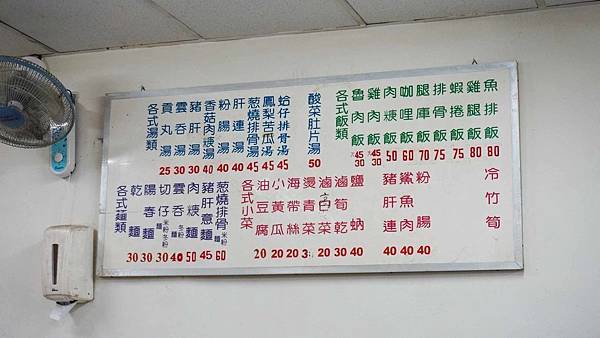 各式湯類
貢丸湯 25
雲吞湯 30
豬肝湯 30
香菇肉焿湯 40
粉腸湯 40
肝連湯 40
葱燒排骨湯 45
鳳梨苦瓜湯 45
蛤仔排骨湯 45
酸菜肚片湯 50
各式飯類
魯肉飯 大45 小30
雞肉飯 大45 小30
肉焿飯 50
咖哩飯 60
腿庫飯 70
排骨飯 75
蝦捲飯 75
雞腿飯 80
魚排飯 80
各式麵類
乾麵 30
腸春麵 30
切仔麵 米粉 冬粉 30
雲吞麵 冬粉 40
肉焿麵 50
豬肝意麵 45
葱燒排骨麵 米粉 60
各式小菜
油豆腐 20
小黃瓜 20
海帶絲 20
燙青菜 3
滷白菜 20
滷筍乾 30
鹽蚋 40
豬肝連 40
鯊魚肉 40
粉腸 40
冷竹筍